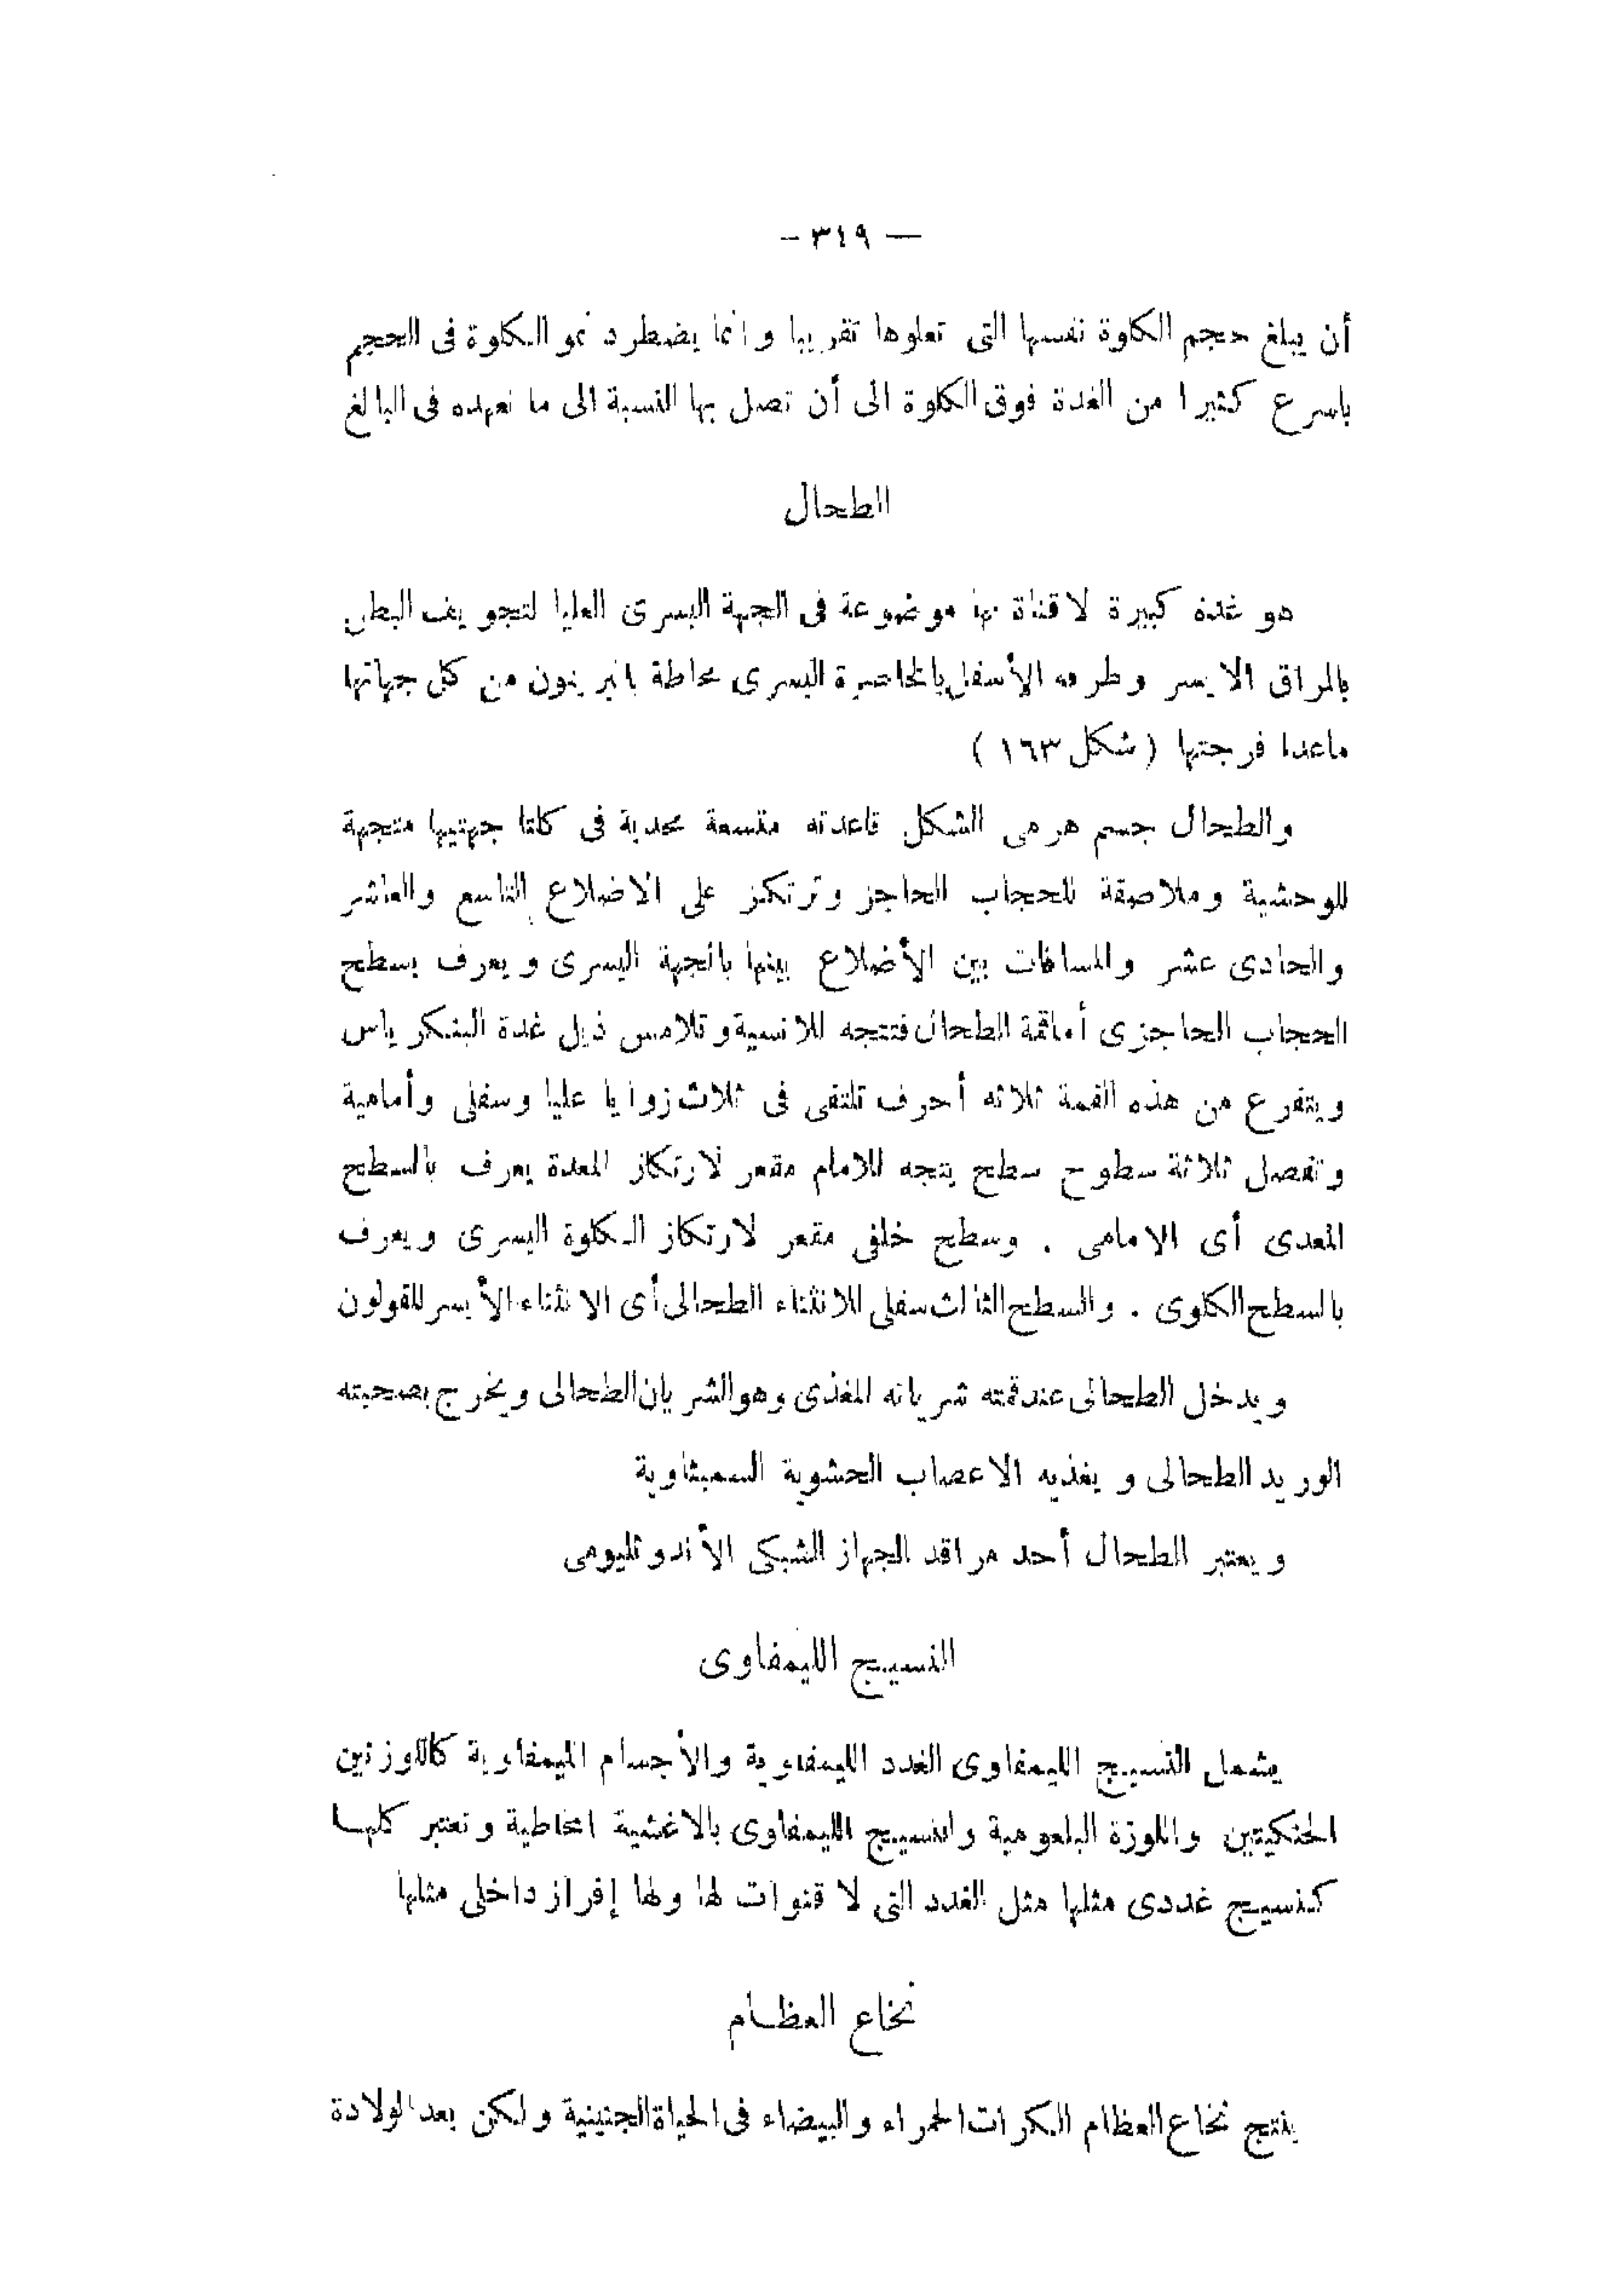 — ٣٤٩ –
أن يبلغ حجم الكلوة نفسها التى تعلوها تقريبا وانما يضطرد نمو الكلوة فى الحجم
باسرع كثيرا من الغدة فوق الكلوة الى أن تصل بها النسبة الى ما نعهده فى البالغ
الطحال
هو غدة كبيرة لا قناة لها موضوعة فى الجهة اليسرى العليا لتجويف البطن
بالمراق الايسر وطرفه الأسفل بالخاصرة اليسرى محاطة بالبريتون من كل جهاتها
ماعدا فرجتها ( شكل ١٦٣ )
والطحال جسم هرمى الشكل قاعدته متسعة محدبة فى كلتا جهتيها متجهة
للوحشية وملاصقة للحجاب الحاجز وترتكز على الاضلاع التاسع والعاشر
والحادى عشر والمسافات بين الأضلاع بينها بالجهة اليسرى ويعرف بسطح
الحجاب الحاجزى أما قمة الطحال فتتجه للانسية وتلامس ذيل غدة البنكرياس
ويتفرع من هذه القمة ثلاثه أحرف تلتقى فى ثلاث زوايا عليا وسفلى وأمامية
وتفصل ثلاثة سطوح سطح يتجه للامام مقعر لارتكاز المعدة يعرف بالسطح
المعدى أى الامامى . وسطح خلفى مقعر لارتكاز الكلوة اليسرى ويعرف
بالسطح الكلوى . والسطح الثالث سفلى للانثناء الطحالى أى الانثناء الأيسر للقولون
ويدخل الطحالى عند قمته شريانه المغذى وهو الشريان الطحالى ويخرج بصحبته
الوريد الطحالى ويغذيه الاعصاب الحشوية السمبثاوية
ويعتبر الطحال أحد مراقد الجهاز الشبكى الأندوثليومى
النسيج الليمفاوى
يشمل النسيج الليمفاوى الغدد الليمفاوية والأجسام الليمفاوية كاللوزتين
الحنكيتين واللوزة البلعومية والنسيج الليمفاوى بالاغشية المخاطية وتعتبر كلها
كنسيج غددى مثلها مثل الغدد التى لا قنوات لها ولها إفراز داخلى مثلها
نخاع العظام
ينتج نخاع العظام الكرات الحمراء والبيضاء فى الحياة الجنينية ولكن بعد الولادة